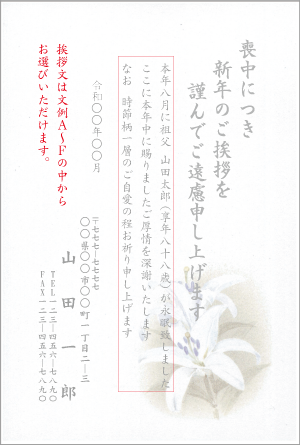 喪中につき
新年のご挨拶を
謹んでご遠慮申し上げます
本年八月に祖父 山田太郎(享年八十八歳)が永眠致しました
ここに本年中に賜りましたご厚情を深謝いたします
なお 時節柄一層のご自愛の程お祈り申し上げます
令和〇〇年〇〇月
〒七七七-七七七七
〇〇県〇〇市〇〇町一丁目二―三
山田一郎
TEL 一二三―四五六―七八九〇
FAX 一二三―四五六―七八九〇
挨拶文は文例A～Fの中から
お選びいただけます。